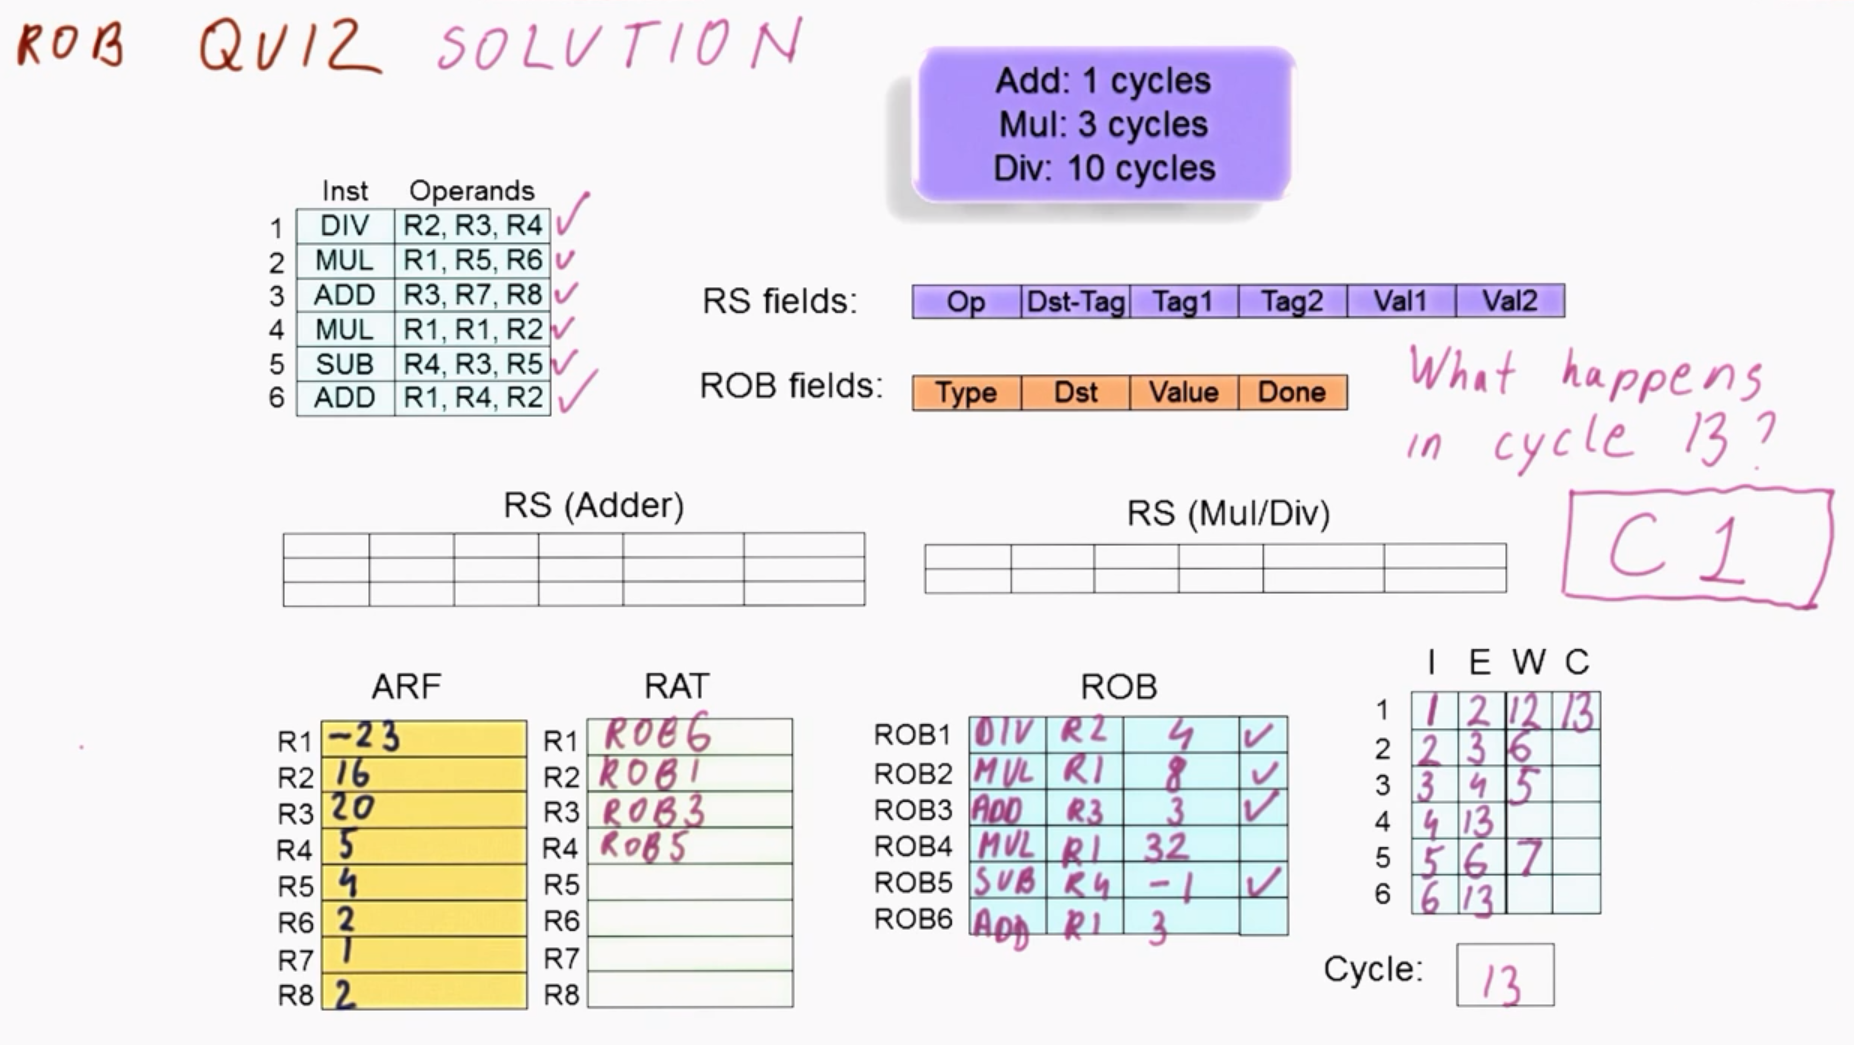 ROB QUIZ SOLUTION
Add: 1 cycles
Mul: 3 cycles
Div: 10 cycles
Inst Operands
1 DIV R2, R3, R4 ✓
2 MUL R1, R5, R6 ✓
3 ADD R3, R7, R8 ✓
4 MUL R1, R1, R2 ✓
5 SUB R4, R3, R5 ✓
6 ADD R1, R4, R2 ✓
RS fields: Op Dst-Tag Tag1 Tag2 Val1 Val2
ROB fields: Type Dst Value Done
What happens
in cycle 13?
C 1
RS (Adder)
RS (Mul/Div)
ARF
R1 -23
R2 16
R3 20
R4 5
R5 4
R6 2
R7 1
R8 2
RAT
R1 ROB6
R2 ROB1
R3 ROB3
R4 ROB5
R5
R6
R7
R8
ROB
ROB1 DIV R2 4 ✓
ROB2 MUL R1 8 ✓
ROB3 ADD R3 3 ✓
ROB4 MUL R1 32
ROB5 SUB R4 -1 ✓
ROB6 ADD R1 3
I E W C
1 1 2 12 13
2 2 3 6
3 3 4 5
4 4 13
5 5 6 7
6 6 13
Cycle: 13